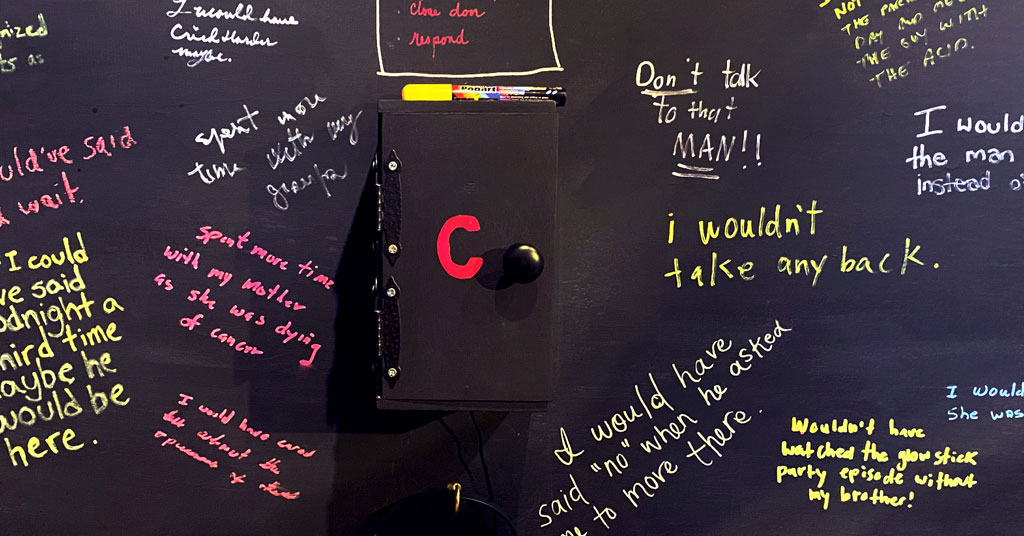 I would have
Cried Harder
maybe.
· Close door
· Respond
NOT
THE PA
DAY AND ME
THE GUY WITH
THE ACID.
nized
ts as
spent more
time with my
grandpa
Don't talk
to that
MAN!!
I would
the man
instead o
uld've said
wait.
Spent more time
with my mother
as she was dying
of cancer
C
i wouldn't
take any back.
I could
ve said
odnight a
hird time
aybe he
would be
here.
I would have cared
less about the
opinions of others
I would have
said "no" when he asked
me to move there.
I would
She was
Wouldn't have
watched the glow stick
party episode without
my brother!